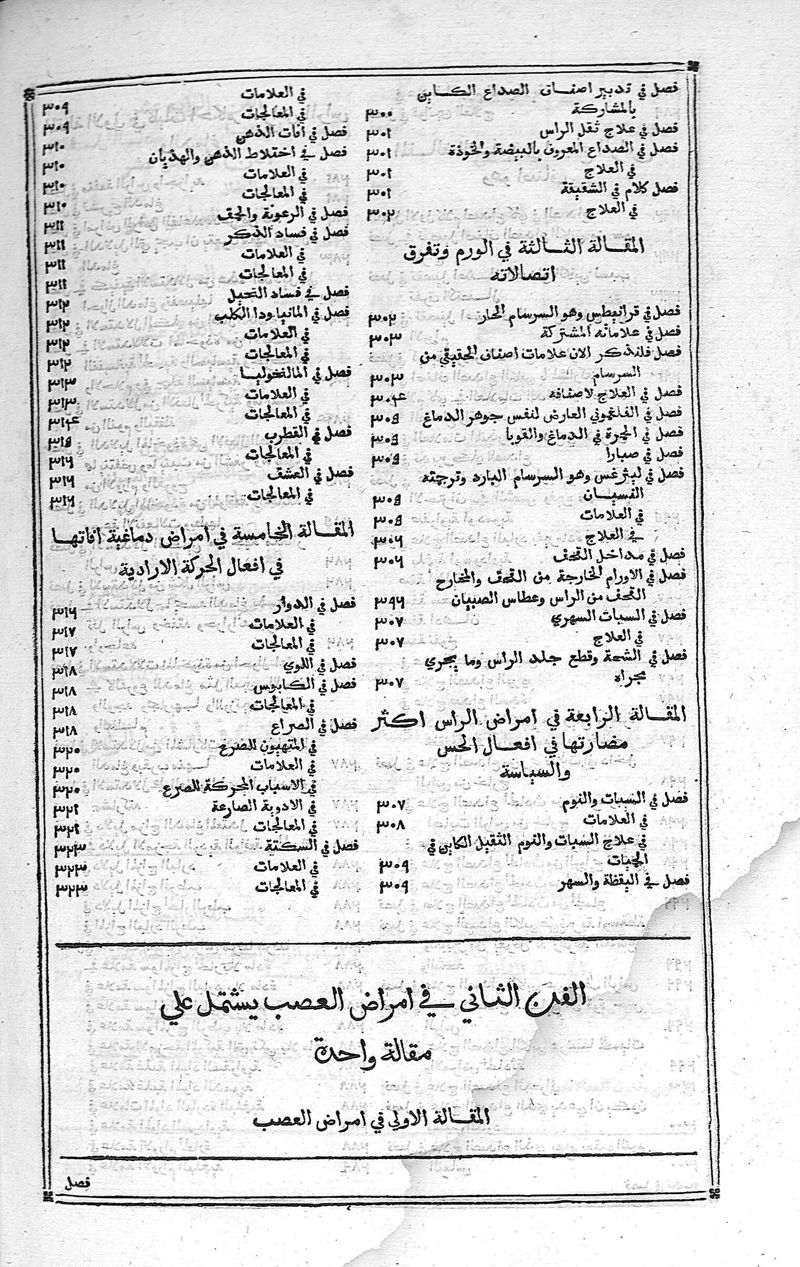 فصل في تدبير اصناف الصداع الكاين
بالمشاركة ٣٠٠
فصل في علاج ثقل الراس ٣٠١
فصل في الصداع المعروف بالبيضة والخوذة ٣٠١
في العلاج ٣٠١
فصل كلام في الشقيقة ٣٠١
في العلاج ٣٠٢
المقالة الثالثة في الورم وتفرق
اتصالاته
فصل في قرانيطس وهو السرسام الحار ٣٠٢
فصل في علاماته المشتركة ٣٠٣
فصل فلنذكر الان علامات اصناف الحقيقي من
السرسام ٣٠٣
فصل في العلاج لاصنافه ٣٠٤
فصل في الفلغموني العارض لنفس جوهر الدماغ ٣٠٥
فصل في الجرة في الدماغ والقوبا ٣٠٥
فصل في صبارا ٣٠٥
فصل في ليثرغس وهو السرسام البارد وترجمته
النسيان ٣٠٥
في العلامات ٣٠٥
في العلاج ٣٠٦
فصل في مداخل القحف ٣٠٦
فصل في الاورام الخارجة من القحف والمخارج
القحف من الراس وعطاس الصبيان ٣٩٦
فصل في السبات السهري ٣٠٧
في العلاج ٣٠٧
فصل في الشجة وقطع جلد الراس وما يجري
مجراه ٣٠٧
المقالة الرابعة في امراض الراس اكثر
مضارتها في افعال الحس
والسياسة
فصل في السبات والنوم ٣٠٧
في العلامات ٣٠٨
في علاج السبات والنوم الثقيل الكاين في
الحيات ٣٠٩
فصل في اليقظة والسهر ٣٠٩
في العلامات ٣٠٩
في المعالجات ٣٠٩
فصل في افات الذهن ٣١٠
فصل في اختلاط الذهن والهذيان ٣١٠
في العلامات ٣١٠
في المعالجات ٣١٠
فصل في الرعونة والحمق ٣١١
فصل في فساد الذكر ٣١١
في العلامات ٣١١
في المعالجات ٣١١
فصل في فساد التخيل ٣١٢
فصل في المانيا ودا الكلب ٣١٢
في العلامات ٣١٢
في المعالجات ٣١٢
فصل في المالنخوليا ٣١٣
في العلامات ٣١٣
في المعالجات ٣١٤
فصل في القطرب ٣١٥
في المعالجات ٣١٦
فصل في العشق ٣١٦
في المعالجات ٣١٦
المقالة الخامسة في امراض دماغية افاتها
في افعال الحركة الارادية
فصل في الدوار ٣١٦
في العلامات ٣١٧
في المعالجات ٣١٧
فصل في اللوي ٣١٨
فصل في الكابوس ٣١٨
في المعالجات ٣١٨
فصل في الصراع ٣١٨
في المتهيون للصرع ٣٢٠
في العلامات ٣٢٠
في الاسباب المحركة للصرع ٣٢٠
في الادوية الصارعة ٣٢١
في المعالجات ٣٢١
فصل في السكتة ٣٢٣
في العلامات ٣٢٣
في المعالجات ٣٢٣
الفن الثاني في امراض العصب يشتمل علي
مقالة واحدة
المقالة الاولي في امراض العصب
فصل